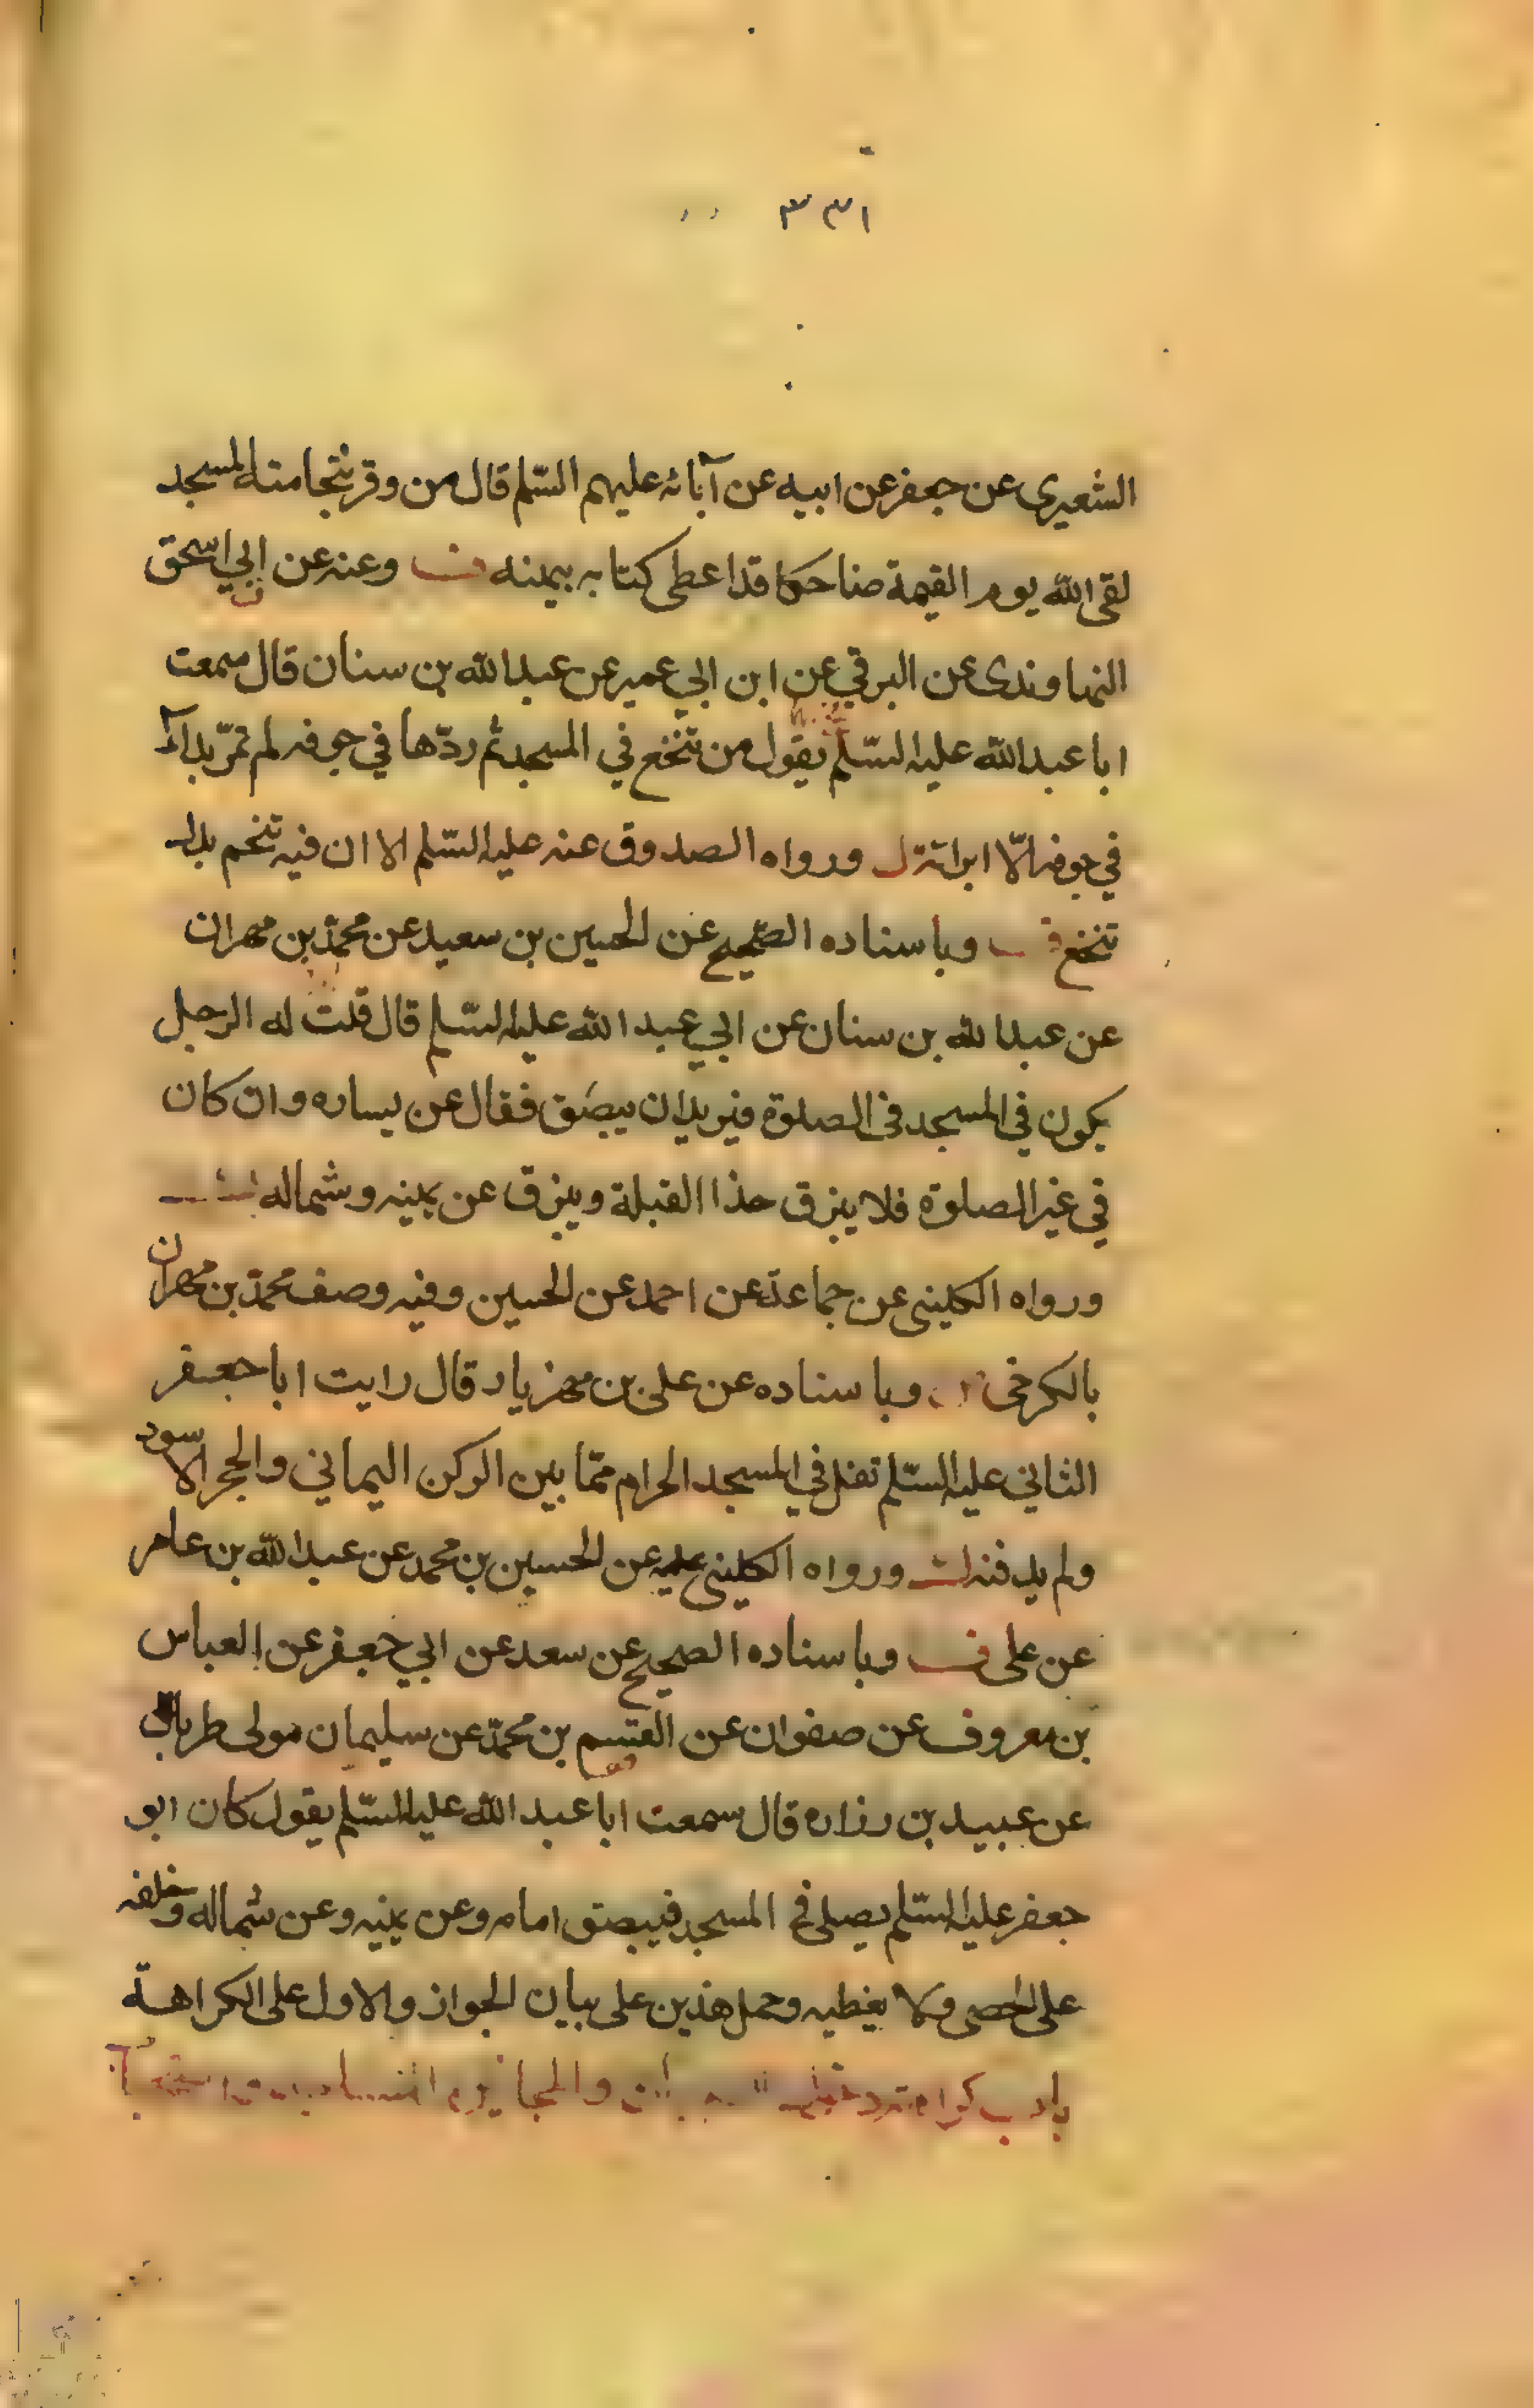 ٣٣١
الشعيرى عن جعفر عن ابيه عن آبائه عليهم السّلم قال من وقر بنخامته المسجد
لقى الله يوم القيمة ضاحكا قد اعطى كتابه بيمينه وعنه عن ابي اسحق
النهاوندى عن البرقي عن ابن ابي عمير عن عبد الله بن سنان قال سمعت
ابا عبد الله عليه السّلم يقول من تنخع في المسجد ثم ردّها في جوفه لم تمرّ بداء
في جوفه الّا ابراته ورواه الصدوق عنه عليه السّلم الا ان فيه تنخم بدل
تنخع وباسناده الصّحيح عن الحسين بن سعيد عن محمّد بن مهران
عن عبد الله بن سنان عن ابي عبد الله عليه السّلم قال قلت له الرجل
يكون في المسجد في الصلوة فيريد ان يبصق فقال عن يساره وان كان
في غير الصلوة فلا يبزق حذا القبلة ويبزق عن يمينه وشماله
ورواه الكليني عن جماعة عن احمد عن الحسين وفيه وصف محمّد بن مهران
بالكرخى وباسناده عن على بن مهزيار قال رايت ابا جعفر
الثاني عليه السّلم تفل في المسجد الحرام ممّا بين الركن اليماني والحجر الاسود
ولم يدفنه ورواه الكليني عن الحسين بن محمد عن عبد الله بن عامر
عن على ف وباسناده الصحيح عن سعد عن ابي جعفر عن العباس
بن معروف عن صفوان عن القسم بن محمّد عن سليمان مولى طربال
عن عبيد بن زراره قال سمعت ابا عبد الله عليه السّلم يقول كان ابو
جعفر عليه السّلم يصلى في المسجد فيبصق امامه وعن يمينه وعن شماله وخلفه
على الحصى ولا يغطيه وحمل هذين على بيان الجواز والاول على الكراهة
باب كراهة والمجانين